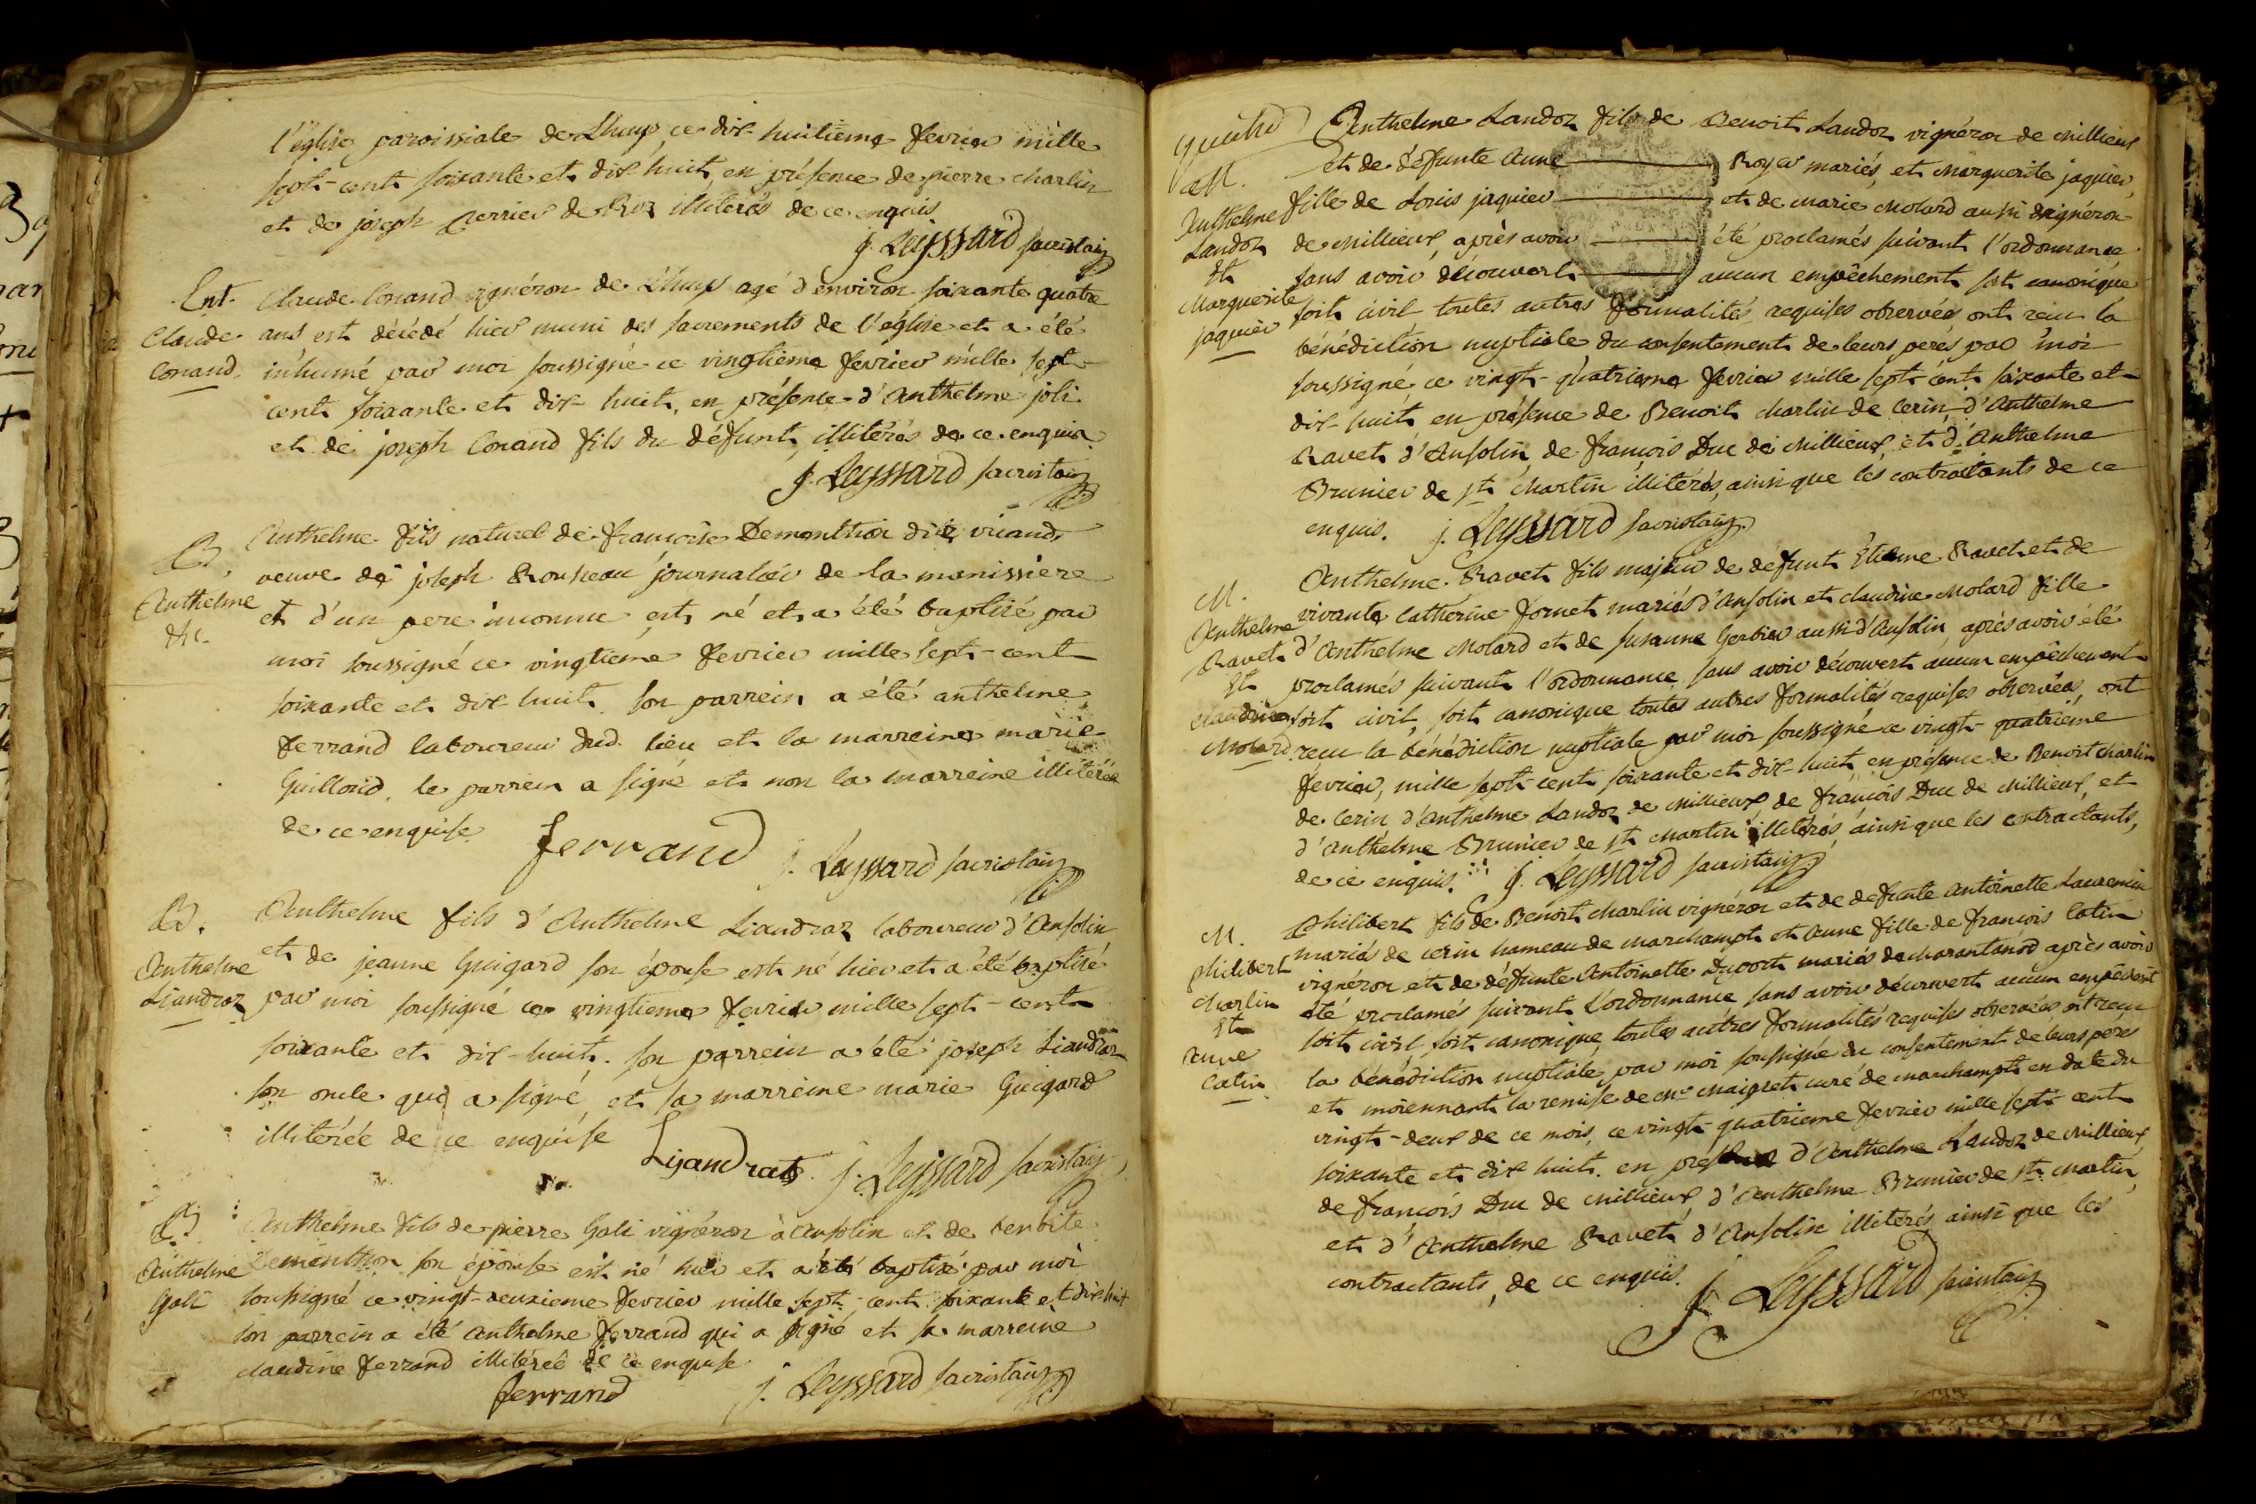 l'église paroissiale de Lhuys, ce dix-huitieme fevrier mille
sept-cent soixante et dix huit, en présence de pierre charlin
et de joseph perrier de Rix illitérés de ce enquis
j. Leyssard sacristain
Ent.
Claude
Conand.
Claude Conand vignéron de Lhuys agé d'environ soixante quatre
ans est décédé hier muni des sacrements de l'église et a été
inhumé par moi soussigné ce vingtieme fevrier mille sept-
cent soixante et dix-huit, en présence d'Anthelme joli
et de joseph Conand fils du défunt, illitérés de ce enquis
j. Leyssard sacristain
B.
Anthelme
&c.
Anthelme fils naturel de françoise Demonthion dit viand,
veuve de joseph Rousseau journalier de la manissiere
et d'un pere inconnu est né et a été baptisé par
moi soussigné ce vingtieme fevrier mille sept-cent
soixante et dix-huit. son parrein a été anthelme
ferrand laboureur dud. lieu et la marreine marie
Guilloud, le parrein a signé et non la marreine illitérée
de ce enquise
ferrand j. Leyssard sacristain
B.
Anthelme
Liandraz
Anthelme fils d'Anthelme Liandraz laboureur d'Ansolin
et de jeanne Guigard son épouse est né hier et a été baptisé
par moi soussigné ce vingtieme fevrier mille sept-cent
soixante et dix-huit. son parrein a été joseph Liandraz
son oncle qui a signé, et sa marreine marie Guigard
illitérée de ce enquise
Liandrat j. Leyssard sacristain
B.
Anthelme
Gali
Anthelme fils de pierre Gali vignéron à Ansolin et de benoite
Demonthion son épouse est né hier et a été baptisé par moi
soussigné ce vingt-deuxieme fevrier mille sept-cent soixante et dix-huit
son parrein a été Anthelme ferrand qui a signé et sa marreine
claudine ferrand illitérée de ce enquise
ferrand j. Leyssard sacristain
quatre
M.
Anthelme
Landoz
et
Marguerite
jaquier
Anthelme Landoz fils de Benoit Landoz vignéron de Millieux
et de défunte Anne Royer mariés, et Marguerite jaquier,
fille de Louis jaquier et de Marie Molard aussi vignéron
de Millieux, après avoir été proclamés suivant l'ordonnance
sans avoir découvert aucun empêchement soit canonique
soit civil toutes autres formalités requises observées ont reçu la
bénédiction nuptiale du consentement de leurs pères par moi
soussigné ce vingt-quatrieme fevrier mille sept-cent soixante et
dix-huit en présence de Benoit charlin de Cerin, d'Anthelme
Ravet d'Ansolin, de françois Duc de Millieux, et d'Anthelme
Brunier de st. Martin illitérés, ainsi que les contractants de ce
enquis. j. Leyssard sacristain
M.
Anthelme
Ravet
et
claudine
Molard
Anthelme Ravet fils majeur de defunt Etienne Ravet et de
vivante Catherine fornet mariés d'Ansolin et claudine Molard fille
d'Anthelme Molard et de susanne Gerbier aussi d'Ansolin, après avoir été
proclamés suivant l'ordonnance, sans avoir découvert aucun empêchement
soit civil, soit canonique toutes autres formalités requises observées, ont
reçu la bénédiction nuptiale par moi soussigné ce vingt-quatrieme
fevrier, mille sept-cent soixante et dix-huit en présence de Benoit charlin
de Cerin d'anthelme Landoz de Millieux de françois Duc de Millieux, et
d'Anthelme Brunier de st. Martin illitérés, ainsi que les contractants,
de ce enquis. j. Leyssard sacristain
M.
philibert
charlin
et
anne
Catin
Philibert fils de Benoit charlin vignéron et de defunte Antoinette
mariés de cerin hameau de marchampt et Anne fille de françois Catin
vignéron et de défunte Antoinette Duport mariés de charantonod après avoir
été proclamés suivant l'ordonnance sans avoir découvert aucun empêchement
soit civil soit canonique, toutes autres formalités requises observées ont reçu
la bénédiction nuptiale par moi soussigné du consentement de leurs peres
et moiennant la remise de Mr Maigret curé de marchampt en date du
vingt-deux de ce mois, ce vingt-quatrieme fevrier mille sept-cent
soixante et dix huit. en présence d'Anthelme Landoz de Millieux
de françois Duc de Millieux, d'Anthelme Brunier de st. Martin,
et d'Anthelme Ravet, d'Ansolin illiterés, ainsi que les
contractants, de ce enquis. j. Leyssard sacristain